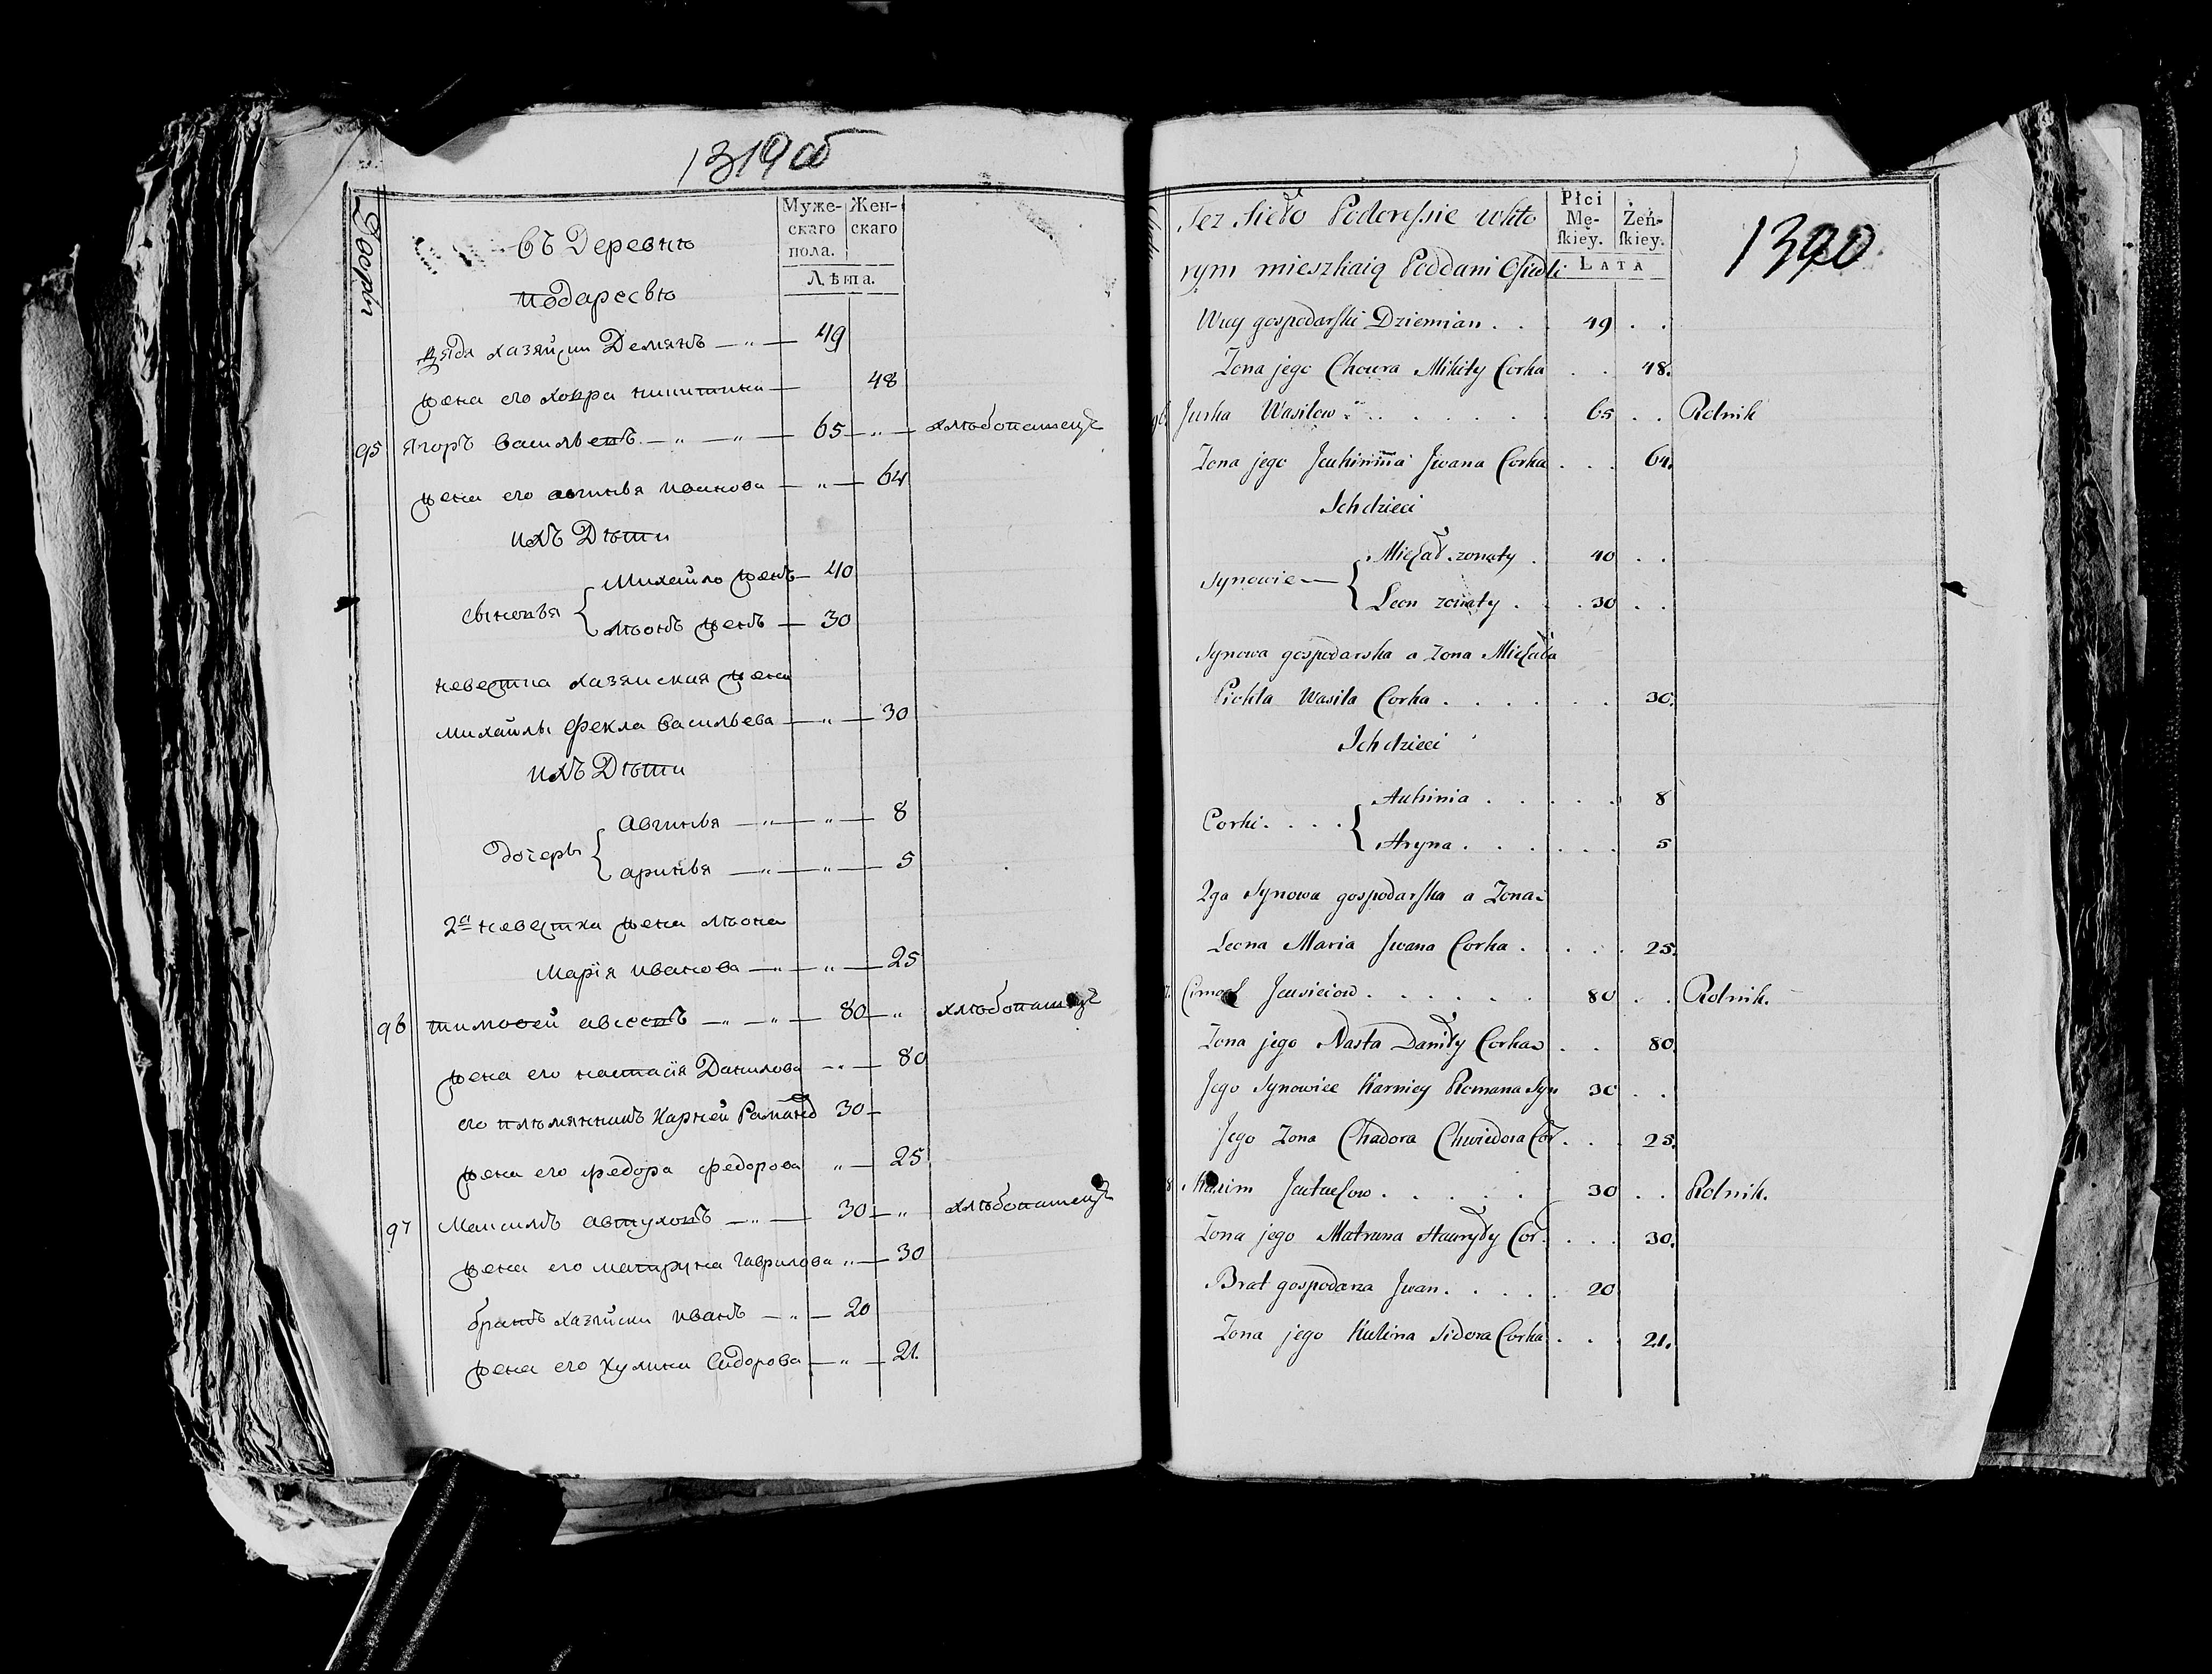 1319 об
Дворы
въ Деревню
подаресвю
Муже-
скаго
пола.
Жен-
скаго
Лѣта.
Дядя хазяйски Демянъ — „ — 49
жена его ховра никитина — 48
95 Ягоръ васильевъ — „ — „ — 65 — „ — хлѣбопашецъ
жена его авгинья иванова — „ — 64
ихъ Дѣти
сыновья { Михайло женъ — 40
лѣонъ женъ — 30
невестка хазяиская жена
михайлы Фекла васильева — „ — 30
ихъ Дѣти
дочеры { авгинья — „ — „ — 8
аринья — „ — „ — 5
2я невестка жена лѣона
Марія иванова — „ — „ — 25
96 тимофей авсеевъ — „ — „ — 80 — „ хлѣбопашецъ
жена его настасія Данилова — „ — 80
его плѣмянникъ Карней Раманов 30 —
жена его федора федорова „ — 25
97 Максимъ автуховъ — „ — 30 — „ хлѣбопашецъ
жена его матруна гаврилова „ — 30
братъ хазяйски иванъ — „ — 20
жена его кулина Сидорова — „ — 21.
1320
Tez Sieło Poderessie wkto
rym mieszkaią Poddani Osiedli
Płci
Mę-
skiey.
Żeń-
skiey.
LATA
Wuy gospodarski Dziemian . . . 49 . .
Zona jego Choura Mikity Corka . . 48.
Jurka Wasilew . . . . . . . 65 . . Rolnik
Zona jego Jauhinnia Jwana Corka . . . 64.
Ich dzieci
Synowie — { Michał zonaty . 40 . .
Leon zonaty . . . 30 . .
Synowa gospodarska a Zona Michała
Piekła Wasila Corka . . . . . . 30.
Ich dzieci
Corki . . . . { Auhinia . . . . . 8
Aryna . . . . . . 5
2ga Synowa gospodarska a Zona
Leona Maria Jwana Corka . . . . 25.
Cimoch Jausieiow . . . . . . 80 . . Rolnik.
Zona jego Nasta Daniły Corka . . 80.
Jego Synowiec Karniey Romana Syn 30 . .
Jego Zona Chadora Chwiedora Cor . . . 25.
Maxim Jautuchow . . . . . 30 . . Rolnik.
Zona jego Matruna Hauryły Cor. . . . 30.
Brat gospodarza Jwan . . . . . 20
Zona jego Kulina Sidora Corka . . . 21.